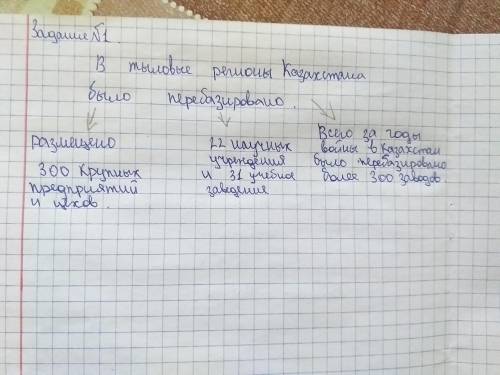 Задание №1.
В тыловые регионы Казахстана
было перебазировано.
размещено
300 крупных
предприятий
и цехов.
22 научных
учреждения
и 31 учебное
заведения
Всего за годы
войны в Казахстан
было перебазировано
более 300 заводов.